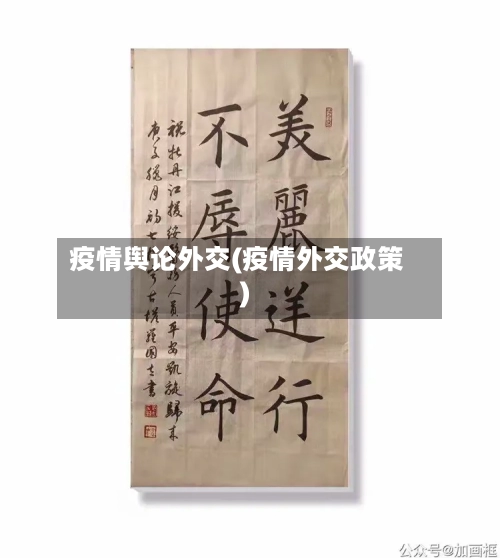 美麗逆行
不辱使命
祝牡丹江援人員平安凱旋歸来
庚子月初七古塔國書
疫情舆论外交(疫情外交政策
)
公众号@加画框